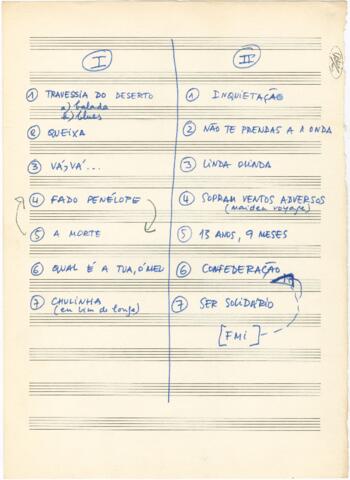 I
① TRAVESSIA DO DESERTO
a) balada
b) blues
② QUEIXA
③ VÁ, VÁ...
④ FADO PENÉLOPE
⑤ A MORTE
⑥ QUAL É A TUA, Ó MEU
⑦ CHULINHA
(eu vim de longe)
II
① INQUIETAÇÃO
② NÃO TE PRENDAS A 1 ONDA
③ LINDA OLINDA
④ SOPRAM VENTOS ADVERSOS
(maiden voyage)
⑤ 13 ANOS, 9 MESES
⑥ CONFEDERAÇÃO
⑦ SER SOLIDÁRIO
[FMI]